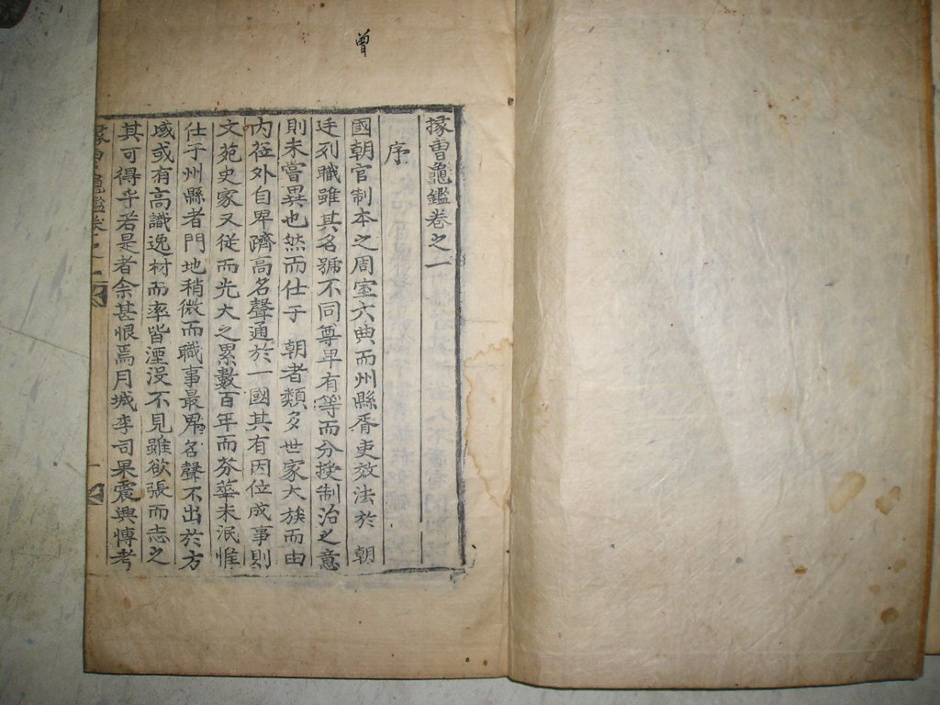 曾
掾曺龜鑑卷之一
序
國朝官制本之周室六典而州縣胥吏效法於 朝
廷列職雖其名號不同尊卑有等而分授制治之意
則未嘗異也然而仕于 朝者類多世家大族而由
內徑外自卑隮高名聲通於一國其有因位成事則
文苑史家又從而光大之累數百年而芬華未泯惟
仕于州縣者門地稍微而職事最卑名聲不出於方
域或有高識逸材而率皆湮沒不見雖欲張而志之
其可得乎若是者余甚恨焉月城李司果震興博考
掾曺龜鑑卷之一
一